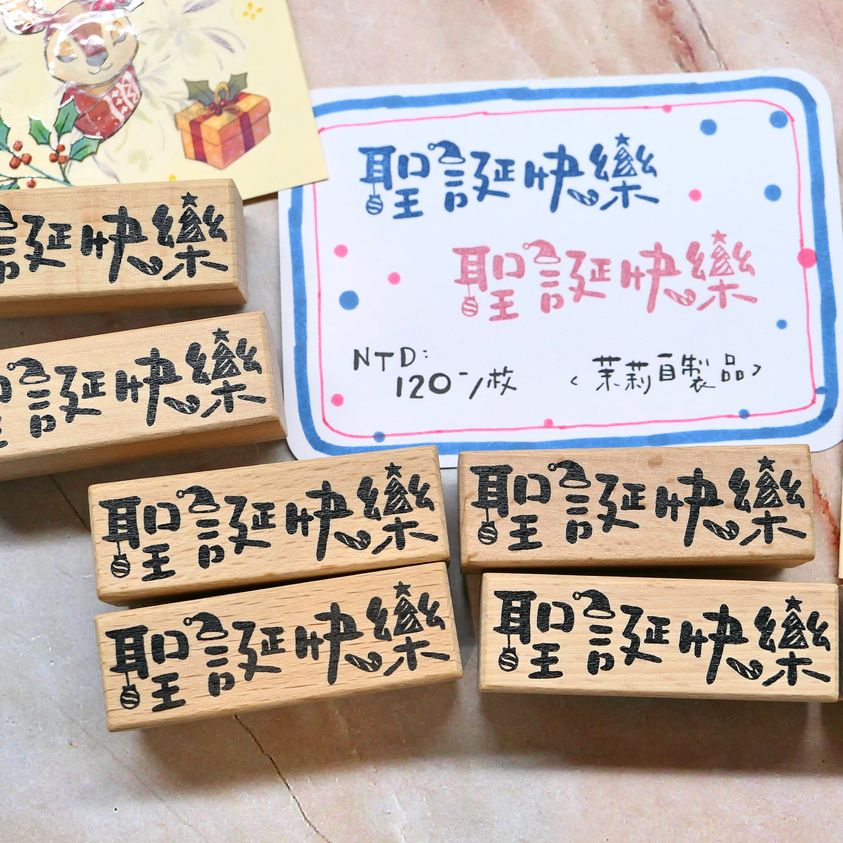 聖誕快樂
聖誕快樂
NTD:
120-/枚
<茉莉自製品>
誕快樂
誕快樂
聖誕快樂
聖誕快樂
聖誕快樂
聖誕快樂